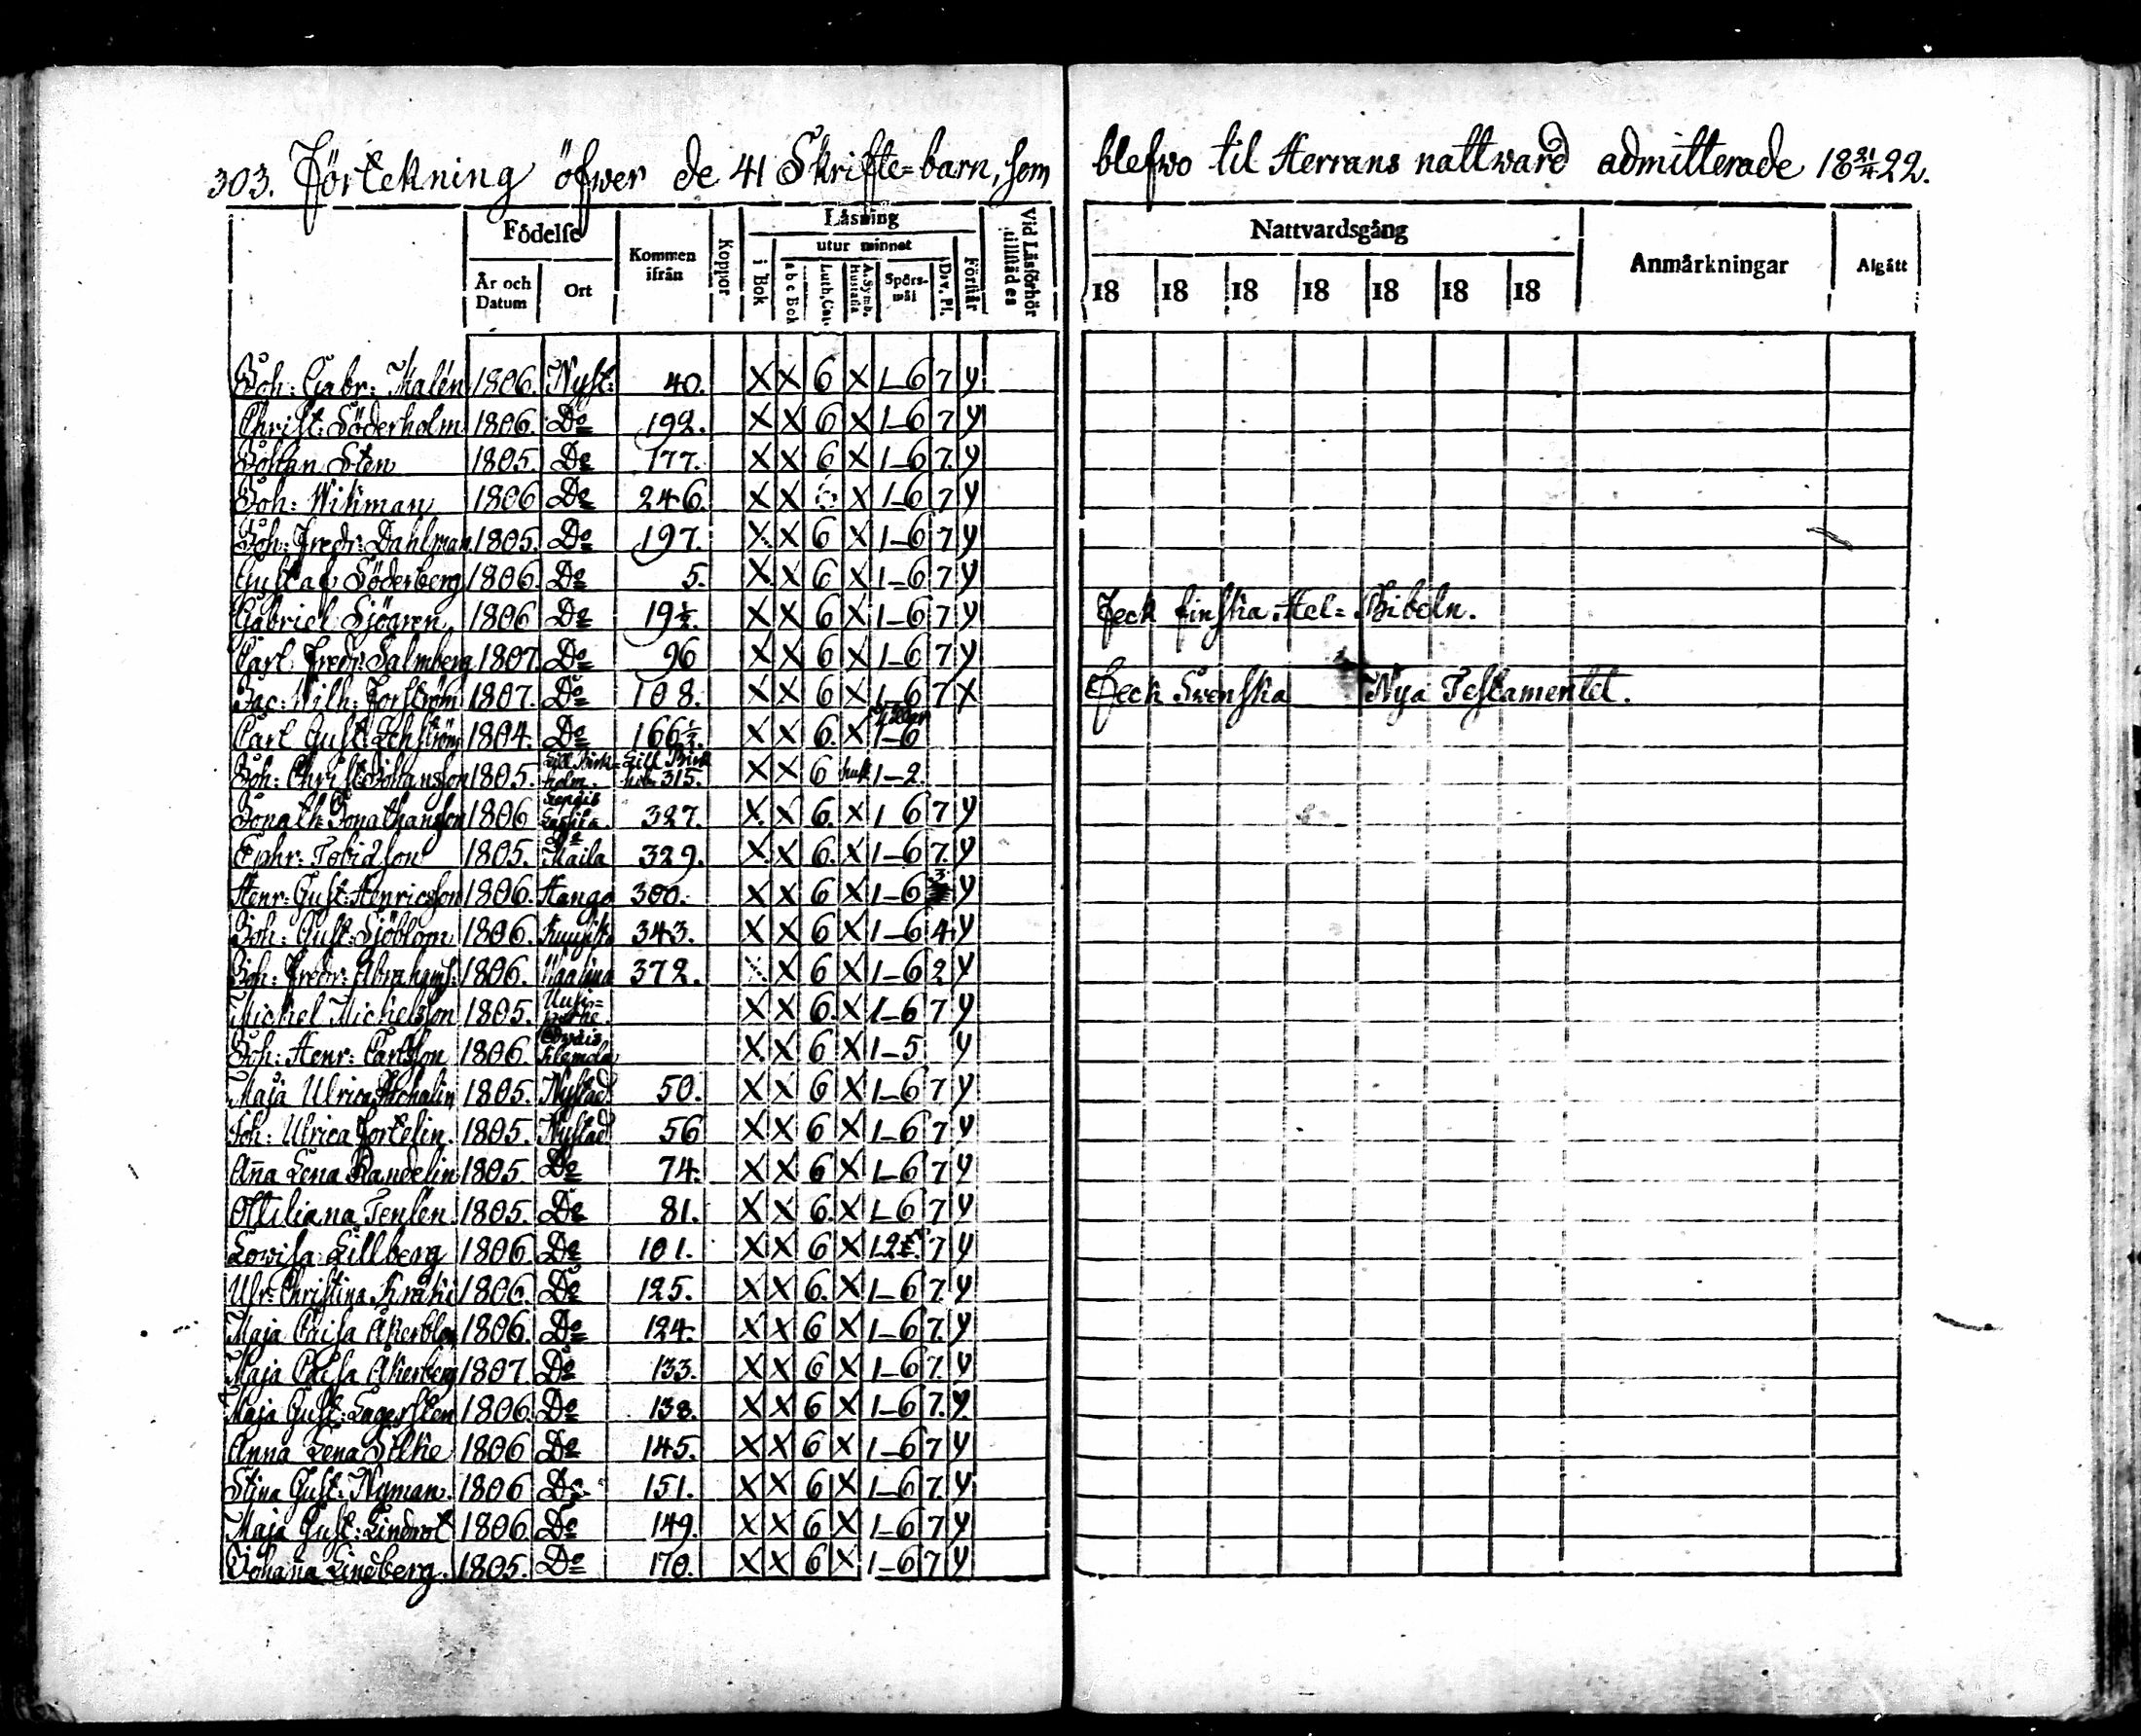 303. Förtekning öfwer de 41 Skrifte=barn, som blefwo til Herrans nattward admitterade 18 21/4 22.
Födelse
Läsning
År och Datum
Ort
Kommen ifrån
Koppor
i Bok
utur minnet
a b c Bok
Luth. Cat.
A. Symb. Hustafla
Spörs-mål
Dav. Ps.
Förstår
Vid Läsförhör tillstädes
Nattvardsgång
18 18 18 18 18 18 18
Anmärkningar
Afgått
Joh: Gabr: Thalén 1806. Nyst: 40. X X 6 X 1-6 7 y
Christ: Söderholm 1806. Do 192. X X 6 X 1-6 7 y
Johan Sten 1805. Do 177. X X 6 X 1-6 7. y
Joh: Wikman 1806 Do 246. X X 6 X 1-6 7 y
Joh: Fredr: Dahlman 1805. Do 197. X X 6 X 1-6 7 y
Gustaf Söderberg 1806. Do 5. X X 6 X 1-6 7 y
Gabriel Sjögren 1806 Do 19½. X X 6 X 1-6 7 y Feck finska Hel= Bibeln.
Carl Fredr: Salmberg 1807. Do 96 X X 6 X 1-6 7 y
Jac: Wilh: Forström 1807. Do 108. X X 6 X 1-6 7 X Feck Swenska Nya Testamentet.
Carl Gust: 1804. Do 166½. X X 6. X 1-6
Joh: Christ: Johansson 1805. 315. X X 6 1-2.
Jonath: Jonathansson 1806 327. X X 6. X 1 6 7 y
Ephr: Tobidson 1805. Do Maila 329. X X 6. X 1-6 7. y
Henr: Gust: Henricsson 1806. Hango 300. X X 6 X 1-6 3 y
Joh: Gust: Sjöblom 1806. 343. X X 6 X 1-6 4 y
Joh: Fredr: Abrahams: 1806. 372. X X 6 X 1-6 2 y
Michel Michelsson 1805. X X 6. X 1-6 7 y
Joh: Henr: Carlsson 1806 X X 6 X 1-5 y
Maja Ulrica 1805. Nystad 50. X X 6 X 1-6 7 y
Joh: Ulrica Fortelin. 1805. Nystad 56 X X 6 X 1-6 7 y
Aña Lena Randelin 1805. Do 74. X X 6 X 1-6 7 y
Ottiliana Tenlén 1805. Do 81. X X 6. X 1-6 7 y
Lowisa Lillberg 1806. Do 101. X X 6 X 7 y
Ulr: Christina 1806. Do 125. X X 6. X 1-6 7. y
Maja Caisa Åkerblom 1806. Do 124. X X 6 X 1-6 7. y
Maja Caisa Åkerberg 1807. Do 133. X X 6 X 1-6 7. y
Maja Gust: Lagersten 1806. Do 138. X X 6 X 1-6 7. y.
Anna Lena Silke 1806 Do 145. X X 6 X 1-6 7 y
Stina Gust: Nyman. 1806 Do 151. X X 6 X 1-6 7. y
Maja Gust: Lindrot 1806. Do 149. X X 6 X 1-6 7 y
Johaña Lindberg. 1805. Do 170. X X 6 X 1-6 7 y